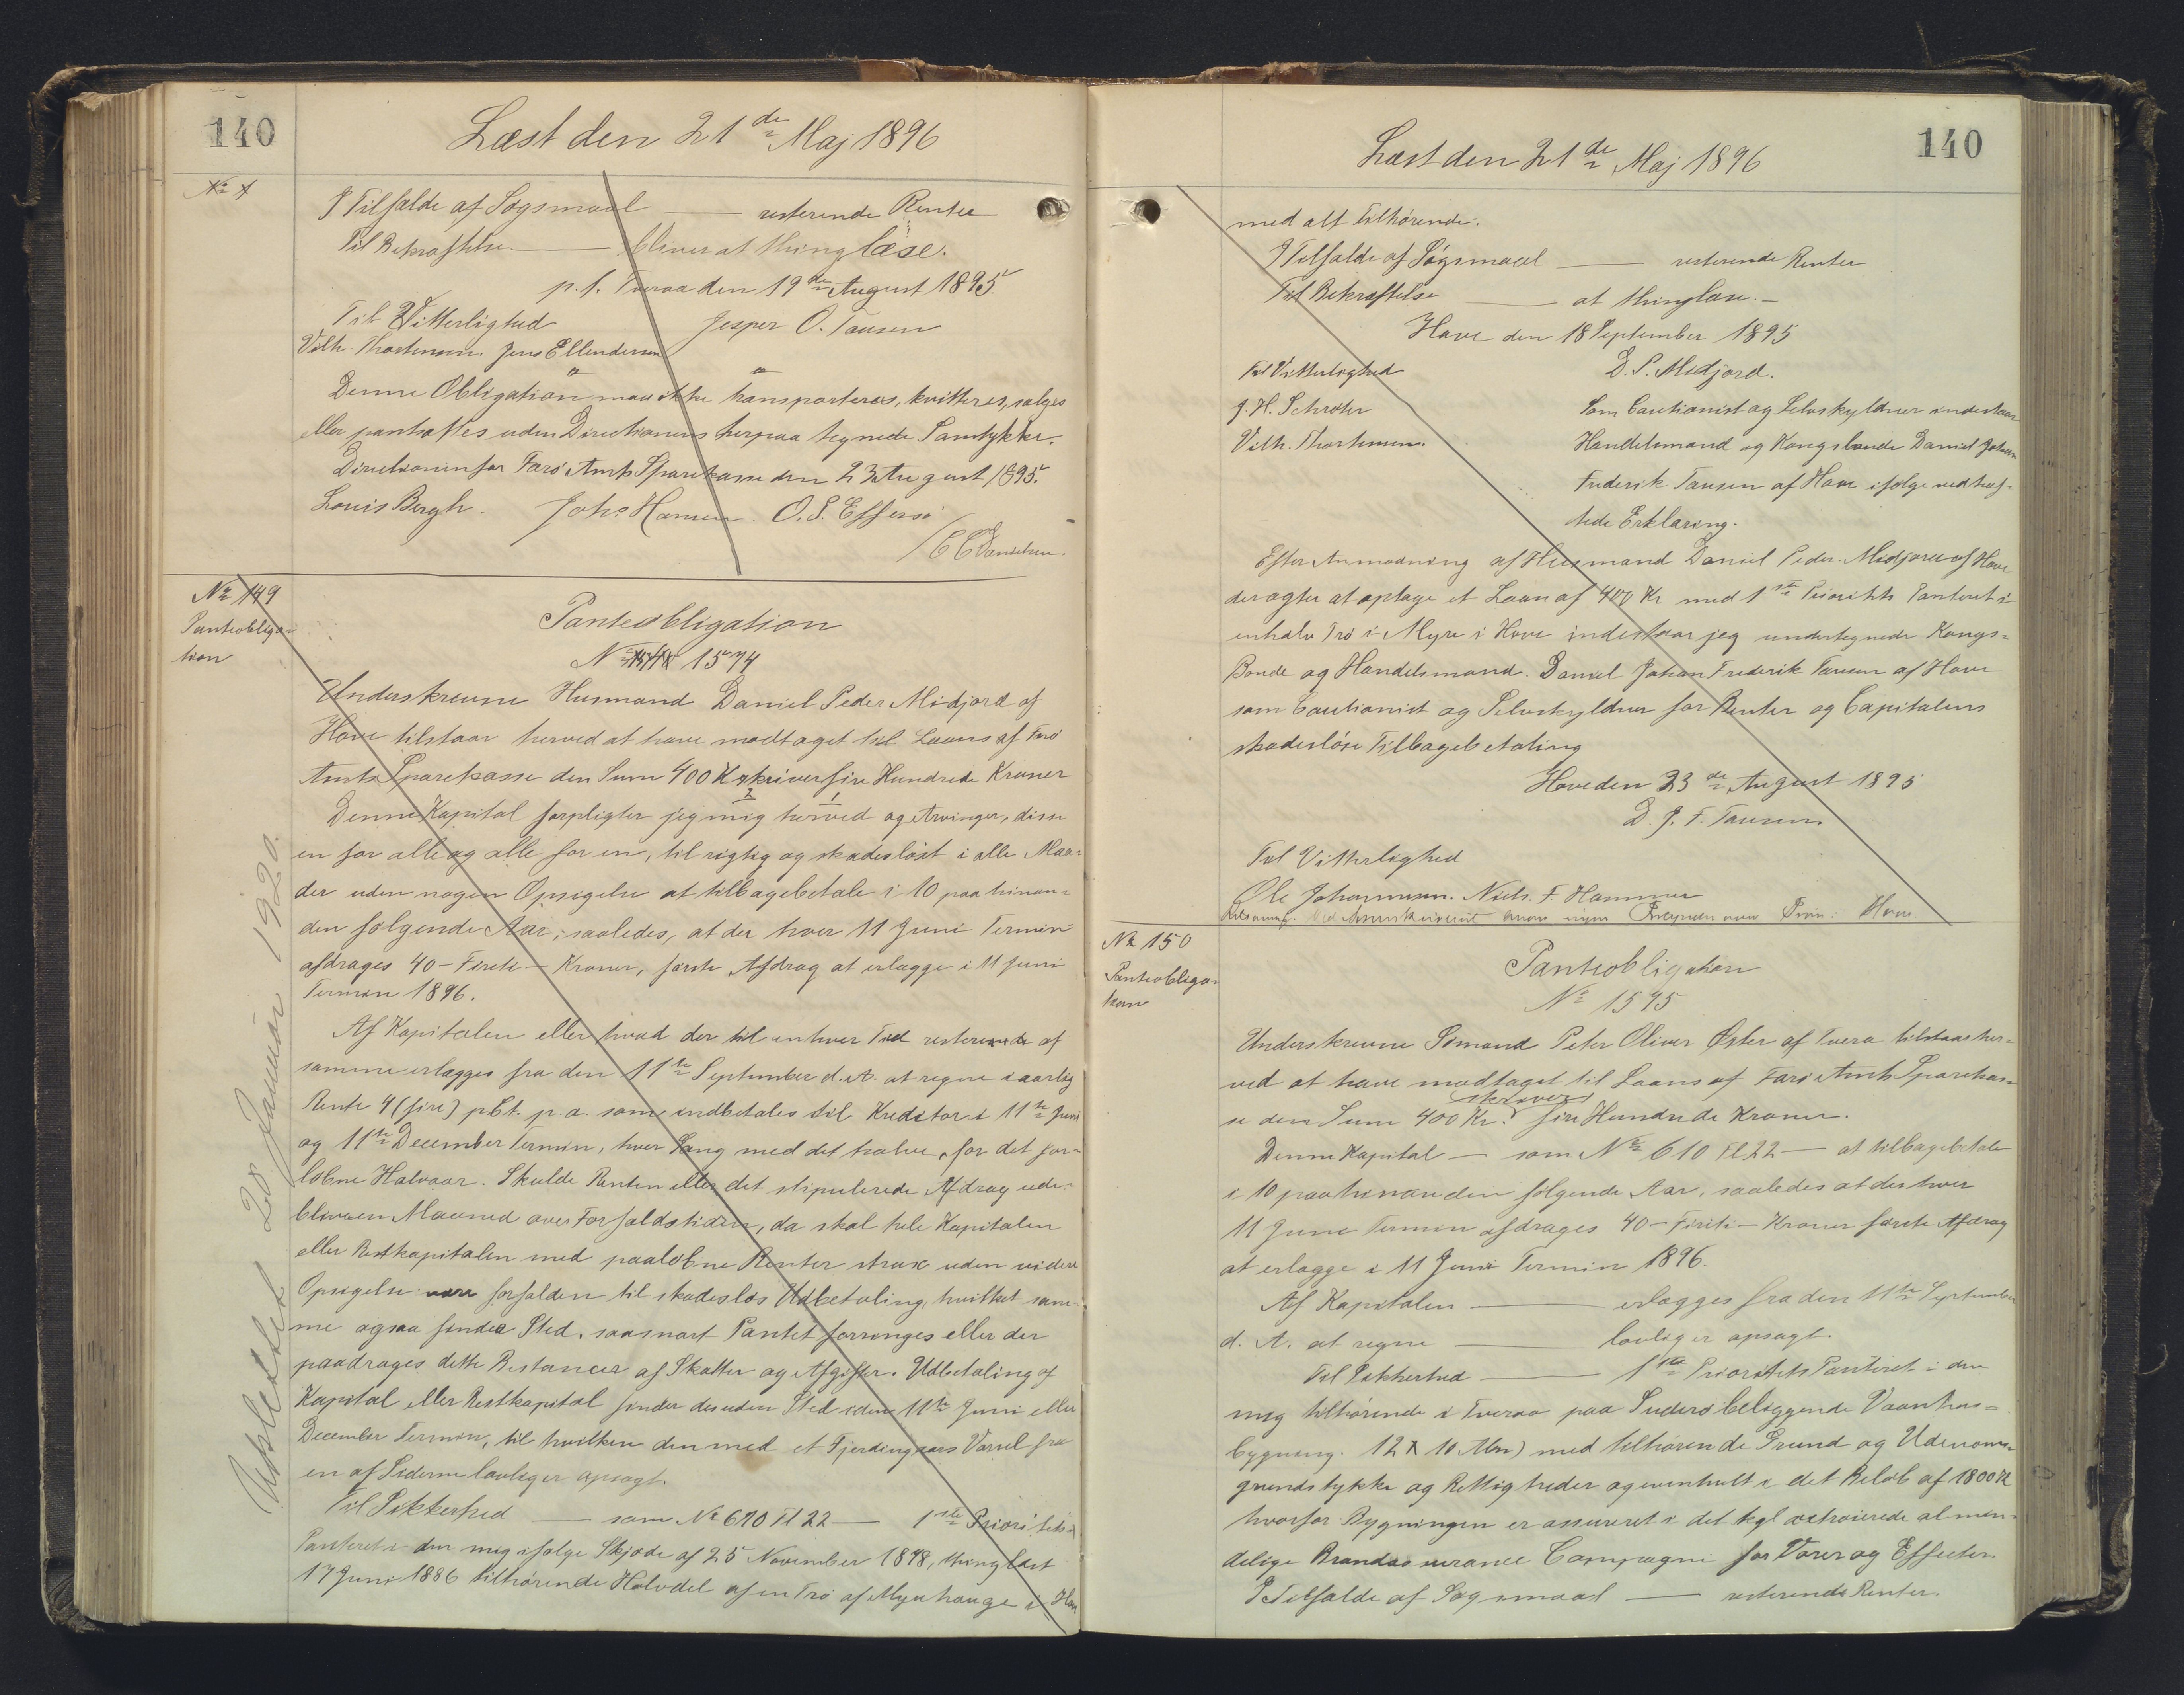 140
Læst den 21de Maj 1896
I Tilfælde af Søgsmaal — resterende Renter
Til Bekræftelse — bliver at thinglæse.
p. t. Tveraa den 19de August 1895.
Til Vitterlighed Jesper O. Tausen
Vilh. Thorstensen. Jens Ellendersen
Denne Obligation maa ikke transporteres, kvitteres, sælges
eller pantsættes uden Directionens herpaa tegnede Samtykke.
Directionen for Færø Amts Sparekasse den 23 August 1895.
Louis Bergh. Johs Hansen. O. S. Effersö
/ C C Danielsen.
No 149
Panteobliga-
tion
Panteobligation
No 1574
Underskrevne Husmand Daniel Peder Midjord af
Hove tilstaar herved at have modtaget til Laans af Færø
Amts Sparekasse den Sum 400 K skriver fire Hundrede Kroner
Denne Kapital forpligter jeg mig herved og Arvinger, disse
en for alle og alle for en, til rigtig og skadesløst i alle Maa-
der uden nogen Opsigelse at tilbagebetale i 10 paa hinan-
den følgende Aar, saaledes, at der hver 11 Juni Termin
afdrages 40 - Fireti - Kroner, første Afdrag at erlægge i 11 Juni
Termin 1896.
Af Kapitalen eller hvad der til enhver Tid resterende af
samme erlægges fra den 11te September d. A. at regne i aarlig
Rente 4 (fire) pCt. p. a. som indbetales til Kreditor i 11te Juni
og 11te December Termin, hver Gang med det halve, for det for-
løbne Halvaar. Skulde Renten eller det stipulerede Afdrag ude-
blive en Maaned over Forfaldstiden, da skal hele Kapitalen
eller Restkapitalen med paaløbne Renter strax uden videre
Opsigelse være forfalden til skadesløs Udbetaling, hvilket sam-
me ogsaa finder Sted, saasnart Pantet forringes eller der
paadrages dette Restancer af Skatter og Afgifter. Udbetaling af
Kapital eller Restkapital finder desuden Sted i den 11te Juni eller
December Termin, til hvilken den med et Fjerdingaars Varsel fra
en af Siderne lovlig er opsagt.
Til Sikkerhed — som No 610 Fl 22 — 1ste Prioritets
Panteret i den mig ifølge Skjøde af 25 November 1878, thinglæst
17 Juni 1886 tilhørende Halvdel af en Trø af Myrehauge i Hove
Udslettet 28 Januar 1920.
140
Læst den 21de Maj 1896
med alt Tilhørende.
I Tilfælde af Søgsmaal — resterende Renter
Til Bekræftelse — at thinglæse. -
Hove den 18 September 1895
Til Vitterlighed D. P. Midjord.
J. H. Schrøter Som Cautionist og Selvskyldner indestaar
Vilh. Thorstensen. Handelsmand og Kongsbonde Daniel Johan
Frederik Tausen af Hove ifølge vedhæf-
tede Erklæring.
Efter Anmodning af Husmand Daniel Peder Midjord af Hove
der agter at optage et Laan af 400 Kr med 1ste Prioritets Panteret i
enhalv Trø i Myre i Hove indestaar jeg undertegnede Kongs-
Bonde og Handelsmand Daniel Johan Frederik Tausen af Hove
som Cautionist og Selvskyldner for Renter og Capitalens
skadesløse Tilbagebetaling
Hove den 23de August 1895
D. J. F. Tausen
Til Vitterlighed
Ole Johannesen. Niels. F. Hammer
No 150
Panteobliga-
tion
Panteobligation
No 1575
Underskrevne Sømand Peter Oliver Øster af Tvera tilstaar her-
ved at have modtaget til Laans af Færø Amts Sparekas-
se den Sum 400 Kr. skriver fire Hundrede Kroner.
Denne Kapital — som No 610 Fl 22 — at tilbagebetale
i 10 paa hinanden følgende Aar, saaledes at der hver
11 Juni Termin afdrages 40 - Fireti - Kroner første Afdrag
at erlægge i 11 Juni Termin 1896.
Af Kapitalen — erlægges fra den 11te September
d. A. at regne — lovlig er opsagt.
Til Sikkerhed — 1ste Prioritets Panteret i den
mig tilhørende i Tveraa paa Suderø beliggende Vaanhus-
bygning. 12 x 10 Aln) med tilhørende Grund og Udenoms-
grundstykke og Rettigheder og eventuelt i det Beløb af 1800 K
hvorfor Bygningen er assureret i det kgl octroierede almin-
delige Brandassurance Compagni for Varer og Effecter.
I Tilfælde af Søgsmaal — resterende Renter.